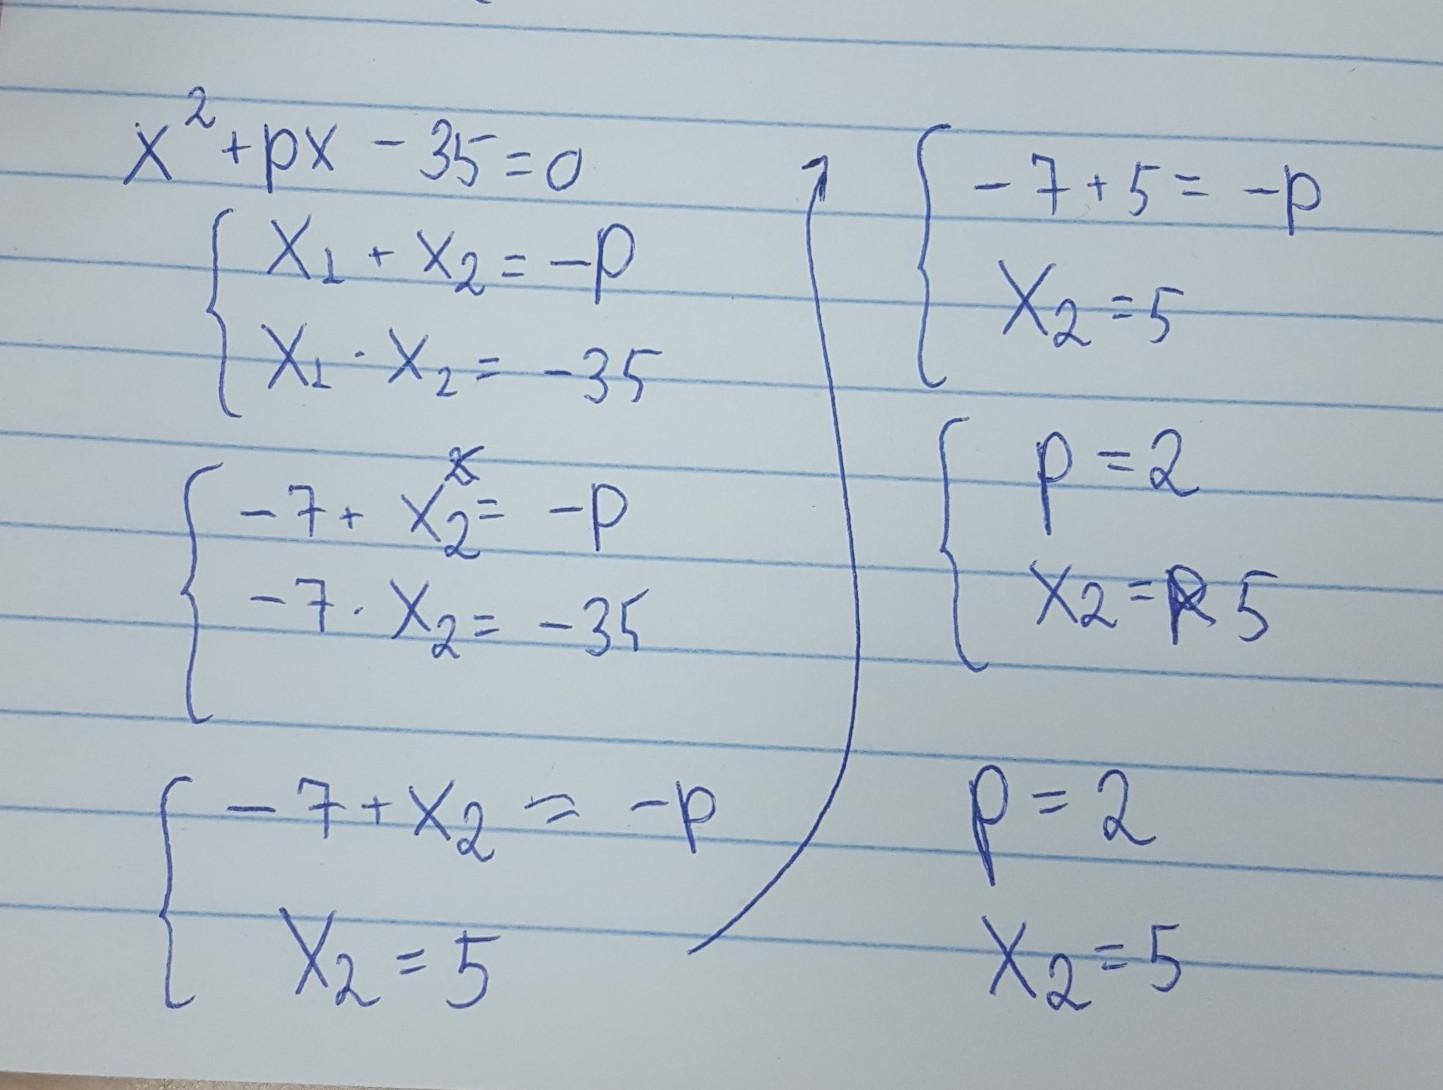 x² + px - 35 = 0
x₁ + x₂ = -p
x₁ · x₂ = -35
-7 + x₂ = -p
-7 · x₂ = -35
-7 + x₂ = -p
x₂ = 5
-7 + 5 = -p
x₂ = 5
p = 2
x₂ = 5
p = 2
x₂ = 5